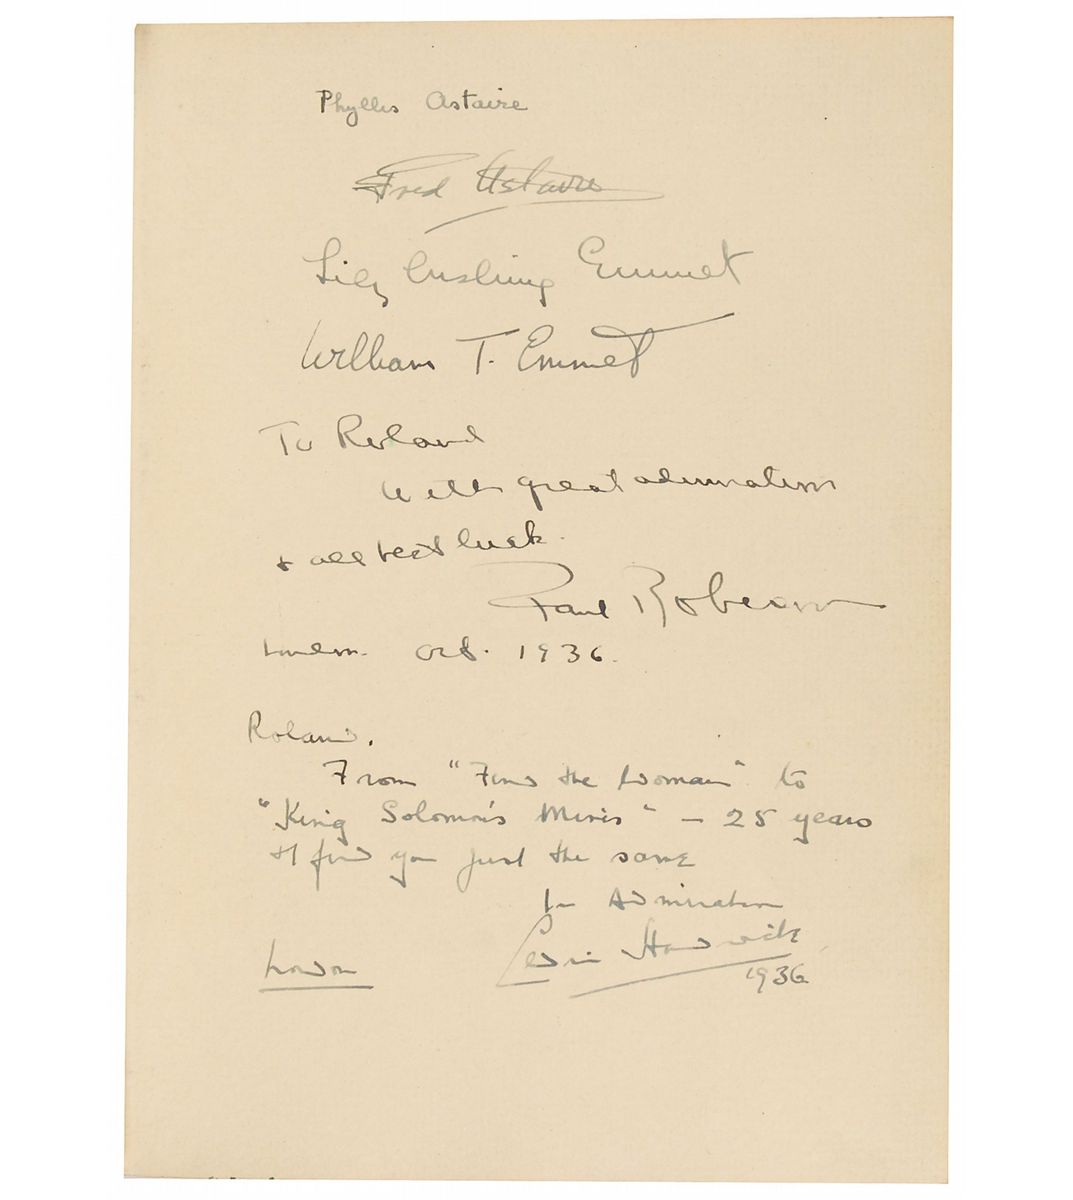 Phyllis Astaire
Fred Astaire
Lily Cushing Emmet
William T. Emmet
To Roland
With great admiration
+ all best luck.
Paul Robeson
London. Oct. 1936.
Roland.
From "Find the Woman" to
"King Solomon's Mines" – 25 years
& I find you just the same
In Admiration
Cedric Hardwicke
London
1936